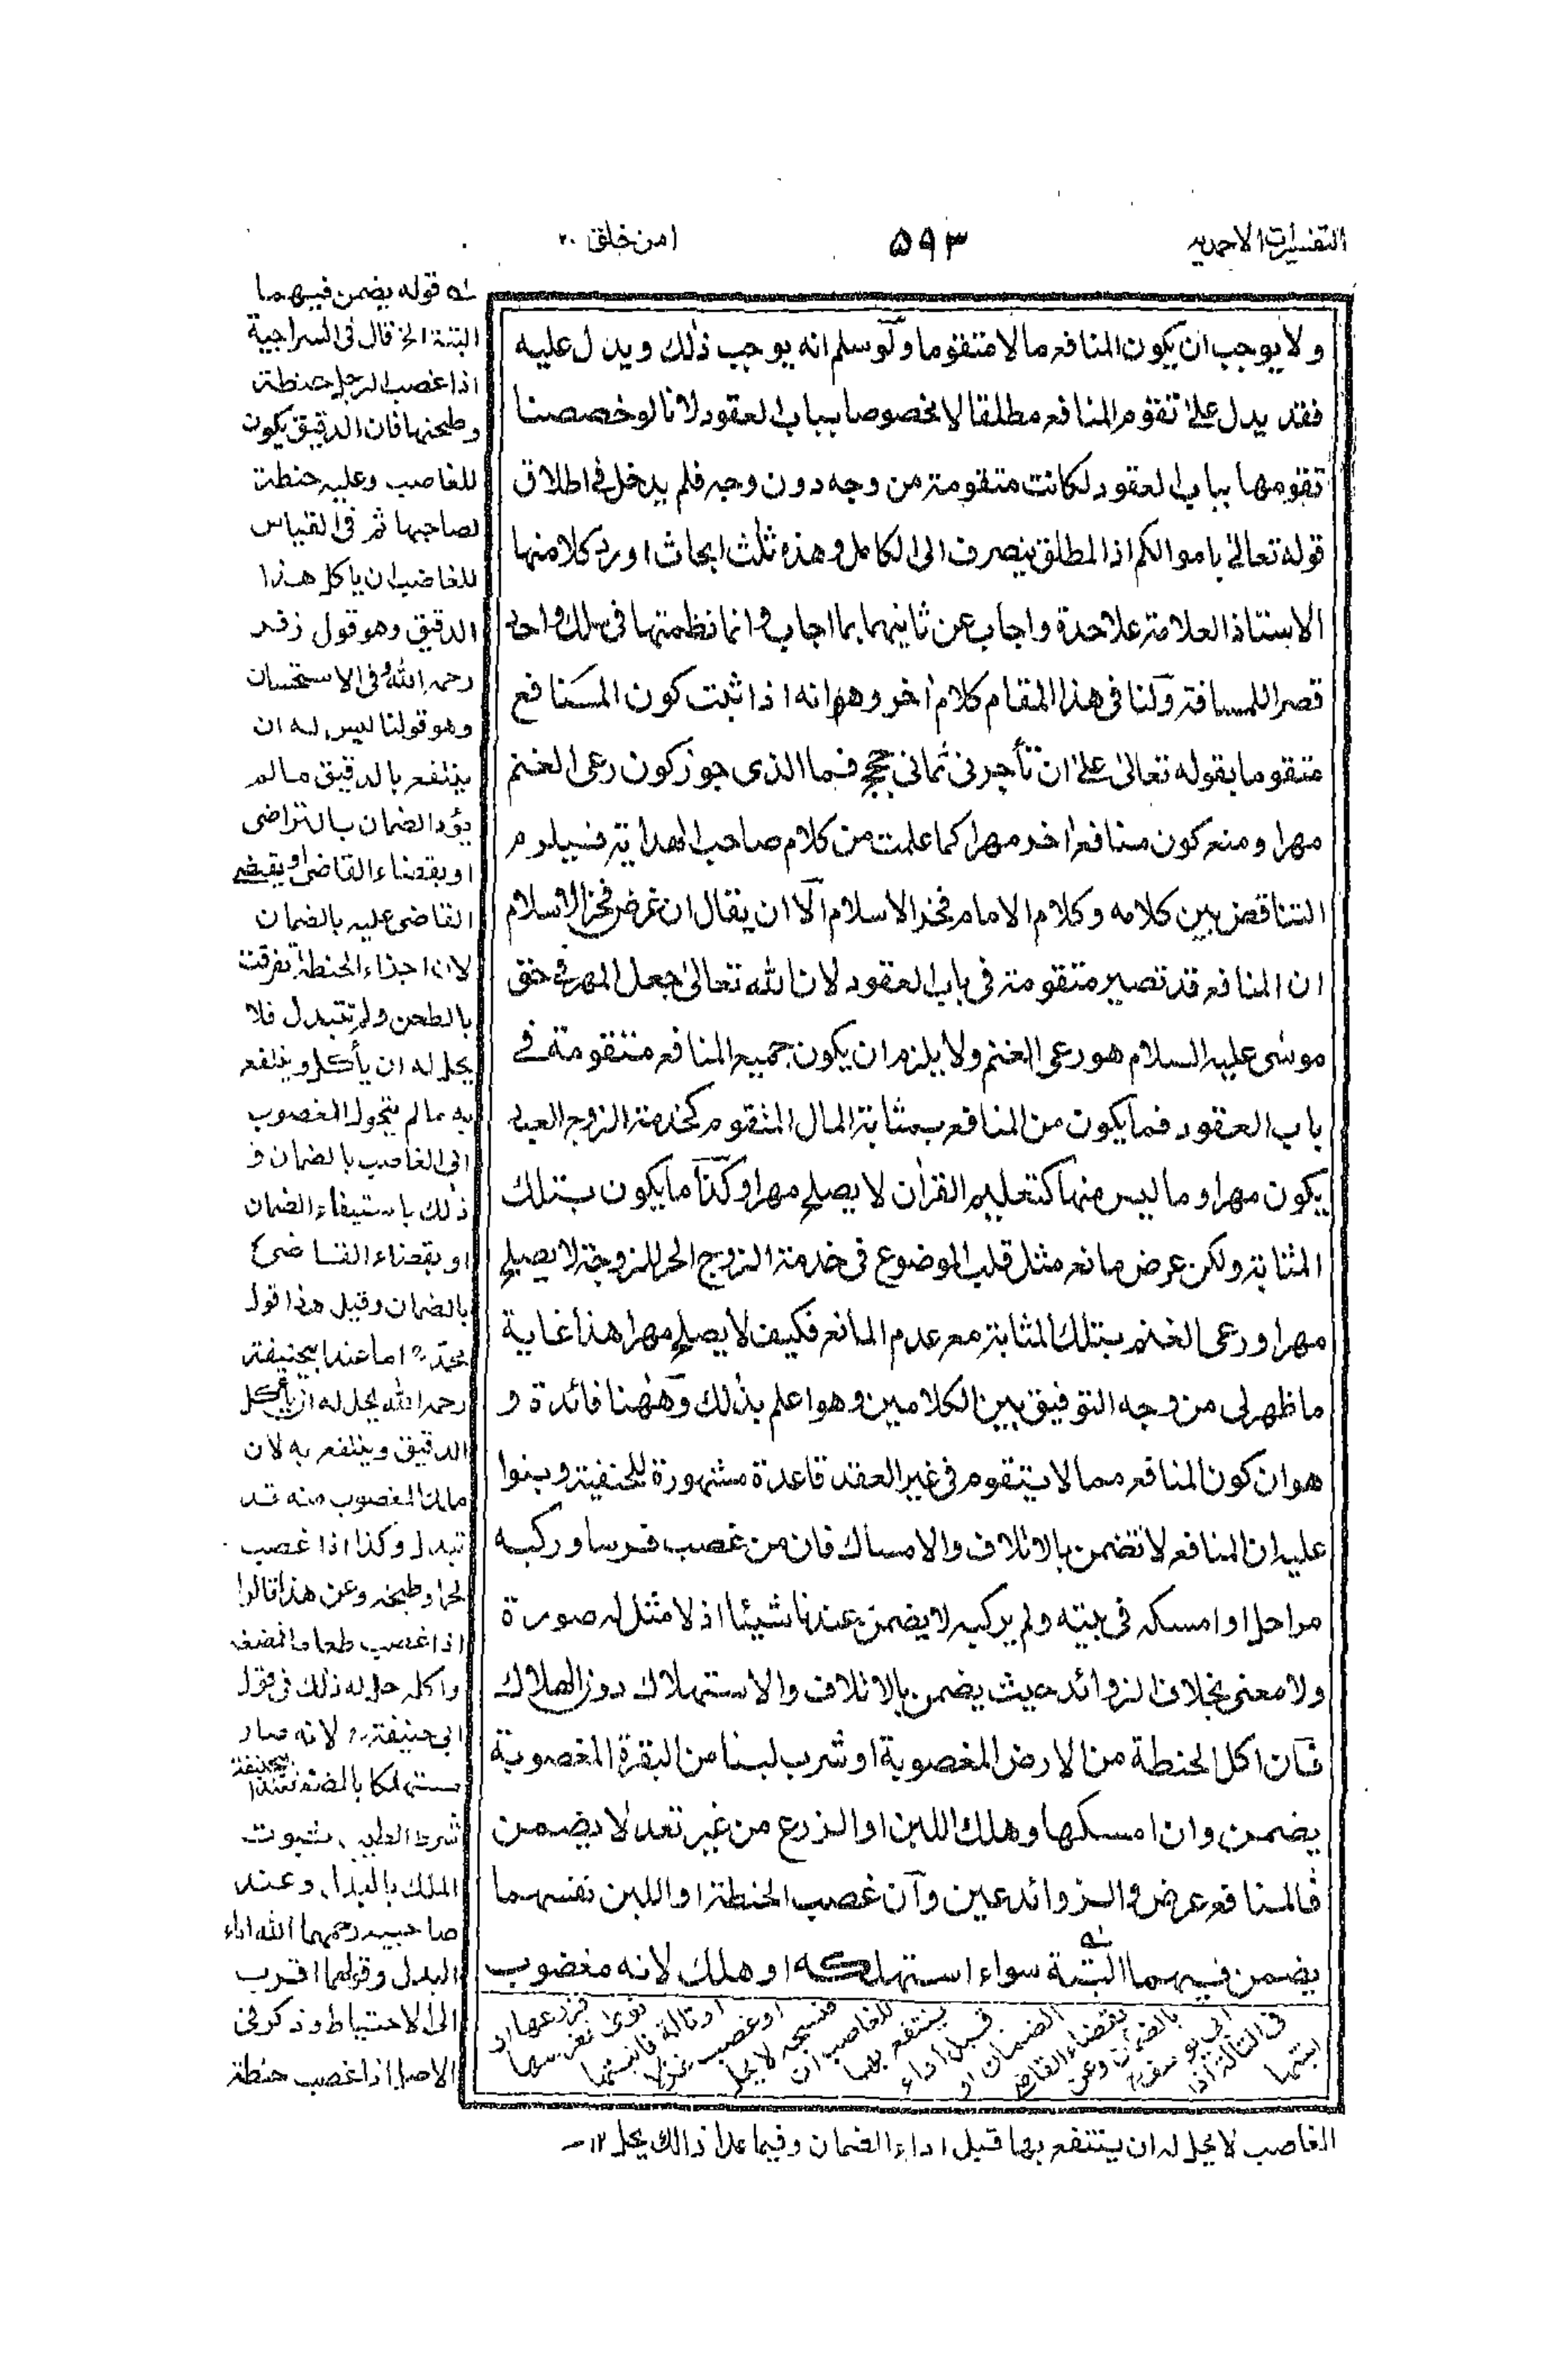 التفسيرات الاحمديه
۵۹۳
امن خلق ۲۰
ولا يوجب ان يكون المنافع مالا متقوما ولو سلم انه يوجب ذلك ويدل عليه
فقد يدل على تقوم المنافع مطلقا لا مخصوصا بباب العقود لانا لو خصصنا
تقومها بباب العقود لكانت متقومة من وجه دون وجه فلم يدخل في اطلاق
قوله تعالى باموالكم اذ المطلق ينصرف الى الكامل وهذه ثلث ابحاث اورد كلا منها
الاستاذ العلامة علاحدة واجاب عن ثانيهما بما اجاب وانما نظمتها في سلك واحد
قصرا للمسافة ولنا في هذا المقام كلام اخر وهو انه اذا ثبت كون المنافع
متقوما بقوله تعالى على ان تأجرني ثماني حجج فما الذي جوز كون رعى الغنم
مهرا ومنع كون منافع اخر مهرا كما علمت من كلام صاحب الهداية فيلزم
التناقض بين كلامه وكلام الامام فخر الاسلام الا ان يقال ان غرض فخر الاسلام
ان المنافع قد تصير متقومة في باب العقود لان الله تعالى جعل المهر في حق
موسى عليه السلام هو رعى الغنم ولا يلزم ان يكون جميع المنافع متقومة في
باب العقود فما يكون من المنافع بمثابة المال المتقوم كخدمة الزوج العبد
يكون مهرا وما ليس منها كتعليم القران لا يصلح مهرا وكذا ما يكون بتلك
المثابة ولكن عرض مانع مثل قلب الموضوع في خدمة الزوج الحر للزوجة لا يصلح
مهرا ورعى الغنم بتلك المثابة مع عدم المانع فكيف لا يصلح مهرا هذا غاية
ما ظهر لى من وجه التوفيق بين الكلامين وهو اعلم بذلك وههنا فائدة و
هو ان كون المنافع مما لا يتقوم في غير العقد قاعدة مشهورة للحنفية وبنوا
عليه ان المنافع لا تضمن بالاتلاف والامساك فان من غصب فرسا وركبه
مراحل او امسكه في بيته ولم يركبه لا يضمن عندنا شيئا اذ لا مثل له صورة
ولا معنى بخلاف الزوائد حيث يضمن بالاتلاف والاستهلاك دون الهلاك
فان اكل الحنطة من الارض المغصوبة او شرب لبنا من البقرة المغصوبة
يضمن وان امسكها وهلك اللبن او الزرع من غير تعد لا يضمن
فالمنافع عرض والزوائد عين وان غصب الحنطة او اللبن نفسهما
يضمن فيهما البتة سواء استهلكه او هلك لانه مغضوب
له قوله يضمن فيهما
البتة الخ قال في السراجية
اذا غصب الرجل حنطة
وطحنها فان الدقيق يكون
للغاصب وعليه حنطة
لصاحبها ثم في القياس
للغاصب ان ياكل هذا
الدقيق وهو قول زفر
رحمه الله وفي الاستحسان
وهو قولنا ليس له ان
ينتفع بالدقيق ما لم
يؤد الضمان بالتراضى
او بقضاء القاضى او يقضى
القاضى عليه بالضمان
لان اجزاء الحنطة تفرقت
بالطحن ولم تتبدل فلا
يحل له ان يأكل وينتفع
به ما لم يتحول المغصوب
الى الغاصب بالضمان و
ذلك باستيفاء الضمان
او بقضاء القاضى
بالضمان وقيل هذا قول
محمد اما عند ابيحنيفة
رحمه الله يحل له ان يأكل
الدقيق وينتفع به لان
مالك المغصوب منه قد
تبدل وكذا اذا غصب
لحما وطبخه وعن هذا قالوا
اذا غصب طعاما فمضغه
واكله حل له ذلك في قول
ابي حنيفة لانه صار
مستهلكا بالمضغ فعند ابيحنيفة
شرط الطيب ثبوت
الملك بالبدل وعند
صاحبيه رحمهما الله اداء
البدل وقولهما اقرب
الى الاحتياط وذكر في
الاصل اذا غصب حنطة
فزرعها او
نوى نغرسها
او تالة فانبتها
او غصب غزلا
فنسجه لا يحل
للغاصب ان
ينتفع بها
قبل اداء
الضمان او
بقضاء القاضى
بالضمان وعن
ابي يوسف
في التالة اذا
انبتها
الغاصب لا يحل له ان ينتفع بها قبل اداء الضمان وفيما عدا ذالك يحل ۱۲